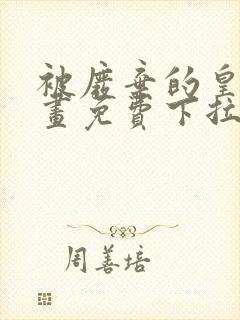 被废弃的皇
畫免費下拉
周善培